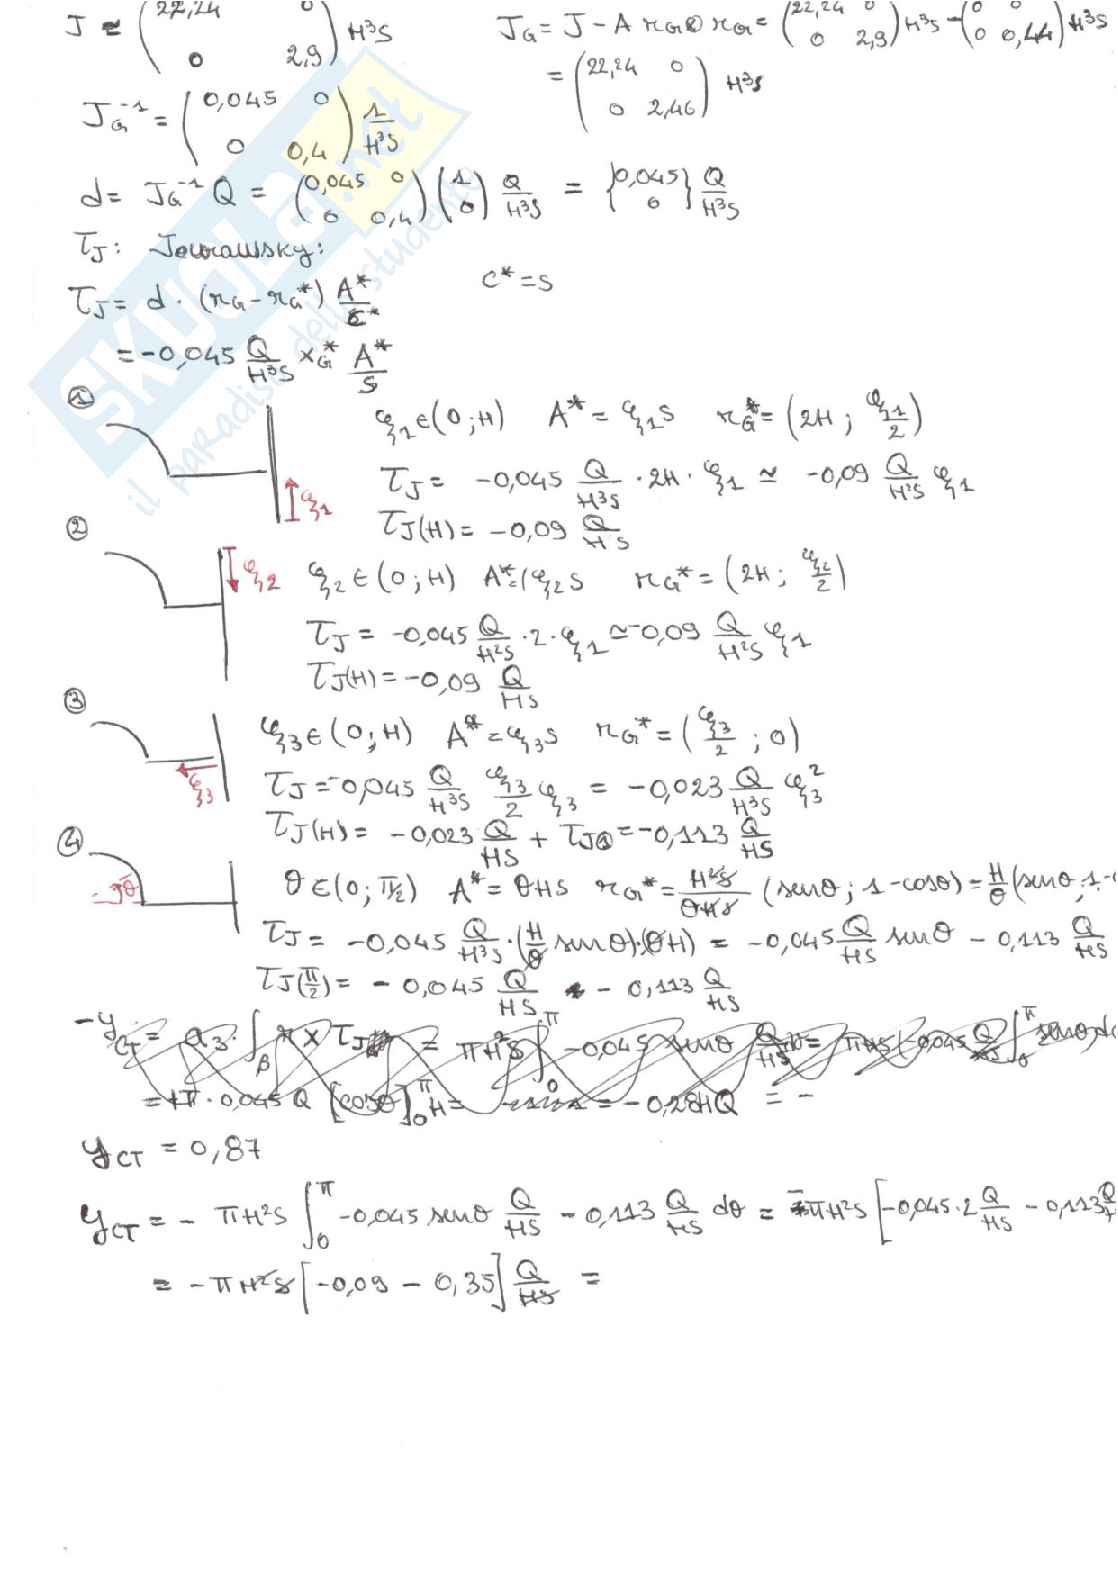 J ≃ (22,24 0 / 0 2,9) H³S    J_G = J − A r_G ⊗ r_G = (22,24 0 / 0 2,9) H³S − (0 0 / 0 0,44) H³S
= (22,24 0 / 0 2,46) H³S
J_G⁻¹ = (0,045 0 / 0 0,4) 1/H³S
d = J_G⁻¹ Q = (0,045 0 / 0 0,4)(1 / 0) Q/H³S = {0,045 / 0} Q/H³S
τ_J: Jourawsky:
c* = s
τ_J = d · (r_G − r_G*) A*/c*
= −0,045 Q/H³S x_G* A*/S
① ξ1 ∈ (0; H)   A* = ξ1 S   r_G* = (2H; ξ1/2)
τ_J = −0,045 Q/H³S · 2H · ξ1 ≃ −0,09 Q/H²S ξ1
ξ1
τ_J(H) = −0,09 Q/HS
② ξ2   ξ2 ∈ (0; H)   A* = ξ2 S   r_G* = (2H; ξ2/2)
τ_J = −0,045 Q/H²S · 2 · ξ1 ≃ −0,09 Q/H²S ξ1
τ_J(H) = −0,09 Q/HS
③ ξ3 ∈ (0; H)   A* = ξ3 S   r_G* = (ξ3/2; 0)
ξ3
τ_J = −0,045 Q/H³S ξ3/2 ξ3 = −0,023 Q/H³S ξ3²
τ_J(H) = −0,023 Q/HS + τ_J① = −0,113 Q/HS
④ θ   θ ∈ (0; π/2)   A* = θHS   r_G* = H²S/θHS (senθ; 1−cosθ) = H/θ (senθ; 1−
τ_J = −0,045 Q/H³S · (H/θ senθ)·(θH) = −0,045 Q/HS senθ − 0,113 Q/HS
τ_J(π/2) = −0,045 Q/HS − 0,113 Q/HS
y_CT = 0,87
y_CT = − πH²S ∫₀^π −0,045 senθ Q/HS − 0,113 Q/HS dθ = −πH²S [−0,045·2 Q/HS − 0,113 Q
= −πH²S [−0,09 − 0,35] Q/HS =
SKUOLA.net
il paradiso dello studente